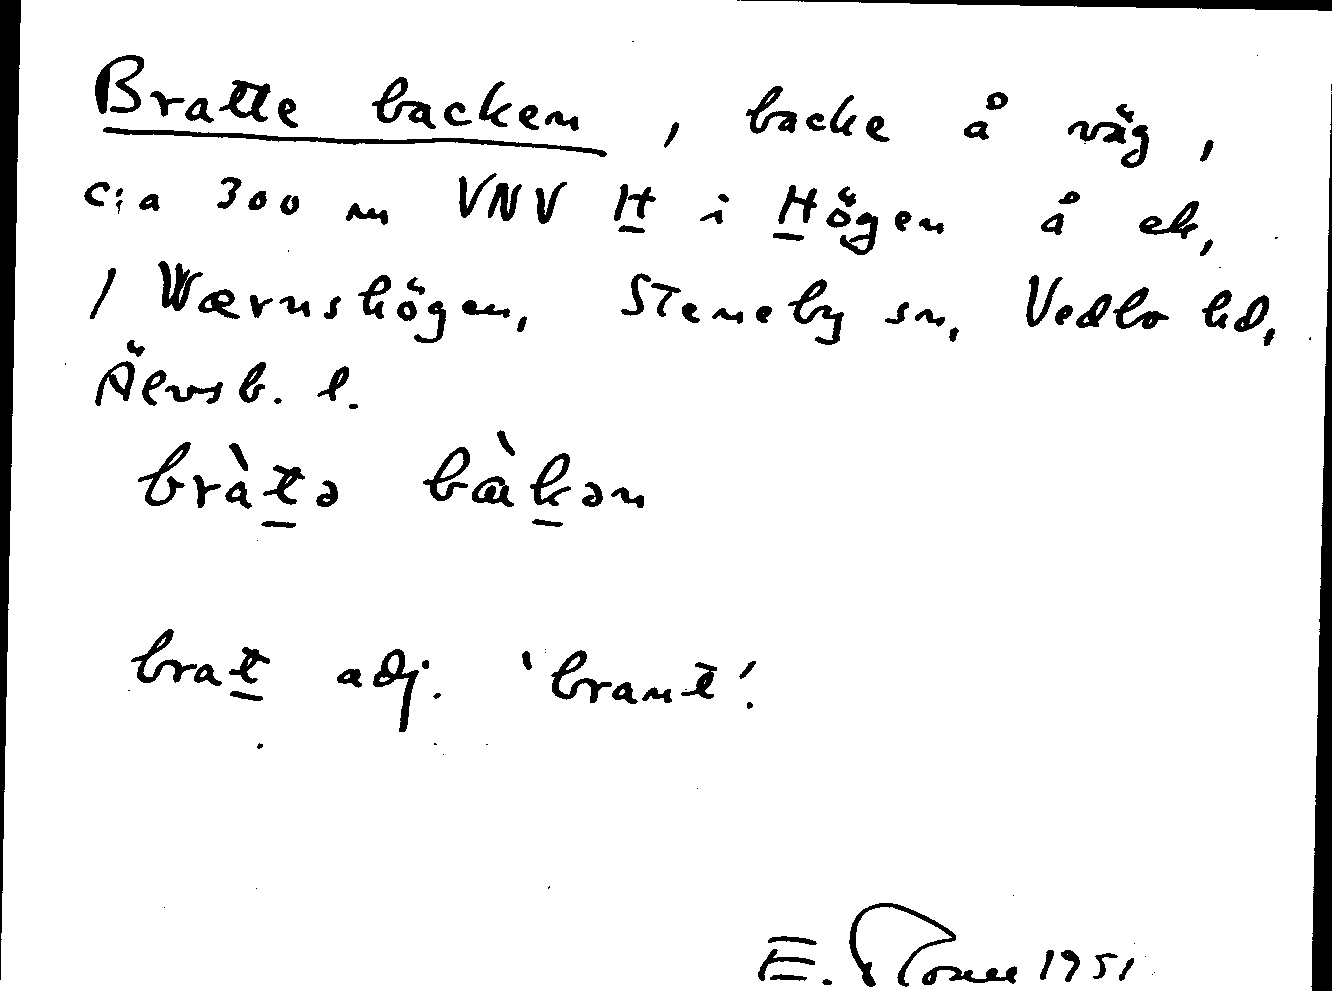 Bratte backen, backe å väg,
c:a 300 m VNV H i Högen å ek,
/ Wærnshögen, Steneby sn, Vedbo hd,
Älvsb. l.
bràtə bàkən
brat adj. 'brant'.
E. 1951